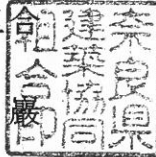 奈良県
建築協同
組合印
合
巖